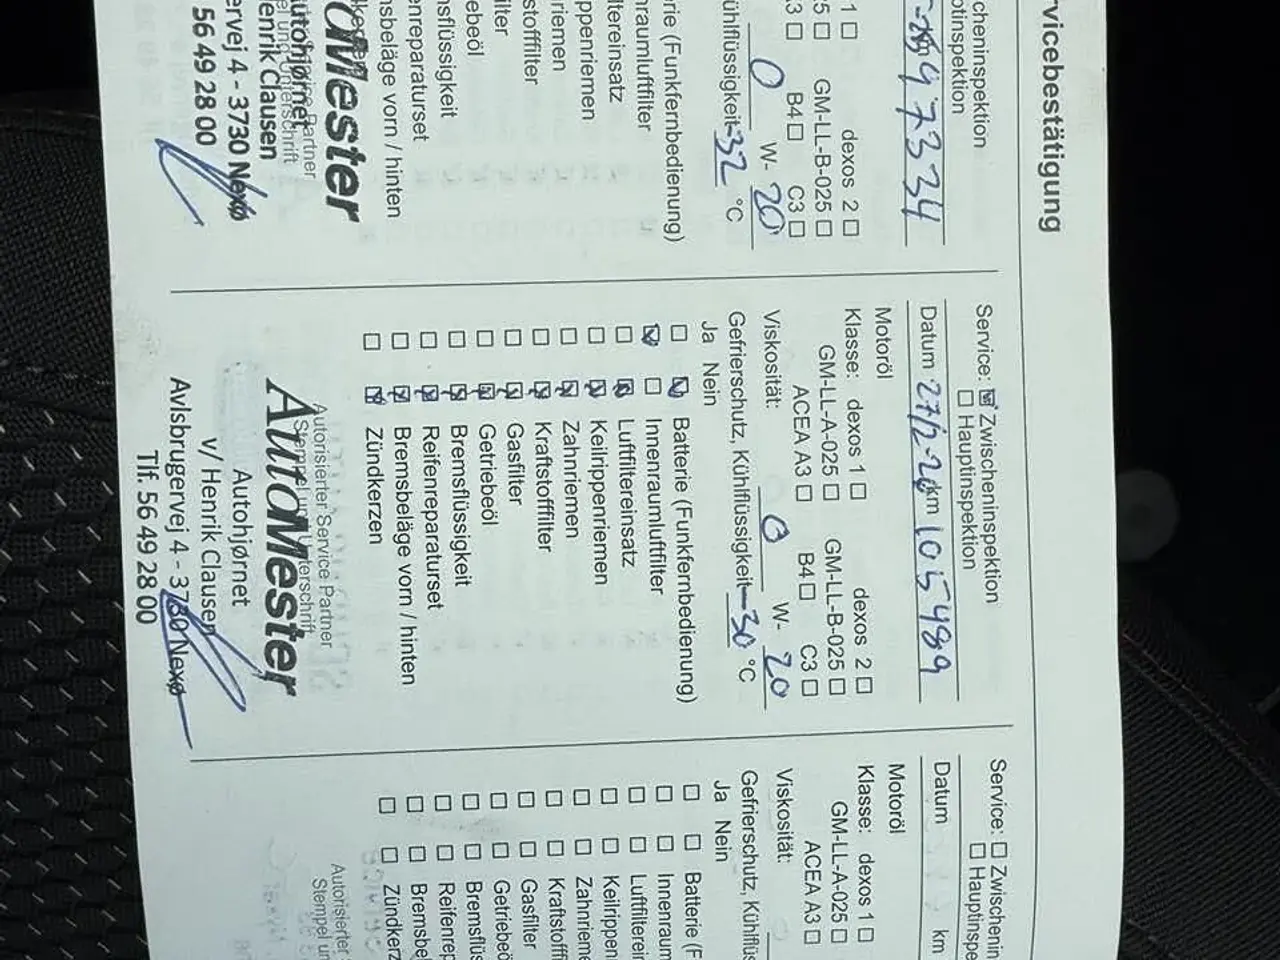 rvicebestätigung
scheninspektion
ptinspektion
97334
1 ☐ dexos 2 ☐
25 ☐ GM-LL-B-025 ☐
A3 ☐ B4 ☐ C3 ☐
0 W- 20
ühlflüssigkeit -32 °C
erie (Funkfernbedienung)
nraumluftfilter
ltereinsatz
ppenriemen
riemen
stofffilter
ilter
ebeöl
nsflüssigkeit
enreparaturset
nsbeläge vorn / hinten
Mester
Partner
Autohjørnet
Henrik Clausen
ervej 4 - 3730 Nexø
56 49 28 00
Service: ☑ Zwischeninspektion
☐ Hauptinspektion
Datum 27/2-20 km 105489
Motoröl
Klasse: dexos 1 ☐ dexos 2 ☐
GM-LL-A-025 ☐ GM-LL-B-025 ☐
ACEA A3 ☐ B4 ☐ C3 ☐
Viskosität: 0 W- 20
Gefrierschutz, Kühlflüssigkeit -30 °C
Ja Nein
☐ ☑ Batterie (Funkfernbedienung)
☑ ☐ Innenraumluftfilter
☐ ☑ Luftfiltereinsatz
☐ ☑ Keilrippenriemen
☐ ☑ Zahnriemen
☐ ☑ Kraftstofffilter
☐ ☑ Gasfilter
☐ ☑ Getriebeöl
☐ ☑ Bremsflüssigkeit
☐ ☑ Reifenreparaturset
☐ ☑ Bremsbeläge vorn / hinten
☐ ☑ Zündkerzen
Autorisierter Service Partner
Stempel und Unterschrift
AutoMester
Autohjørnet
v/ Henrik Clausen
Avlsbrugervej 4 - 3730 Nexø
Tlf. 56 49 28 00
Service: ☐ Zwischenin
☐ Hauptinspe
Datum km
Motoröl
Klasse: dexos 1 ☐
GM-LL-A-025 ☐
ACEA A3 ☐
Viskosität:
Gefrierschutz, Kühlflüs
Ja Nein
☐ ☐ Batterie (F
☐ ☐ Innenraum
☐ ☐ Luftfilterein
☐ ☐ Keilrippen
☐ ☐ Zahnrieme
☐ ☐ Kraftstofff
☐ ☐ Gasfilter
☐ ☐ Getriebeö
☐ ☐ Bremsflüs
☐ ☐ Reifenrep
☐ ☐ Bremsbel
☐ ☐ Zündkerz
Autorisierter
Stempel un